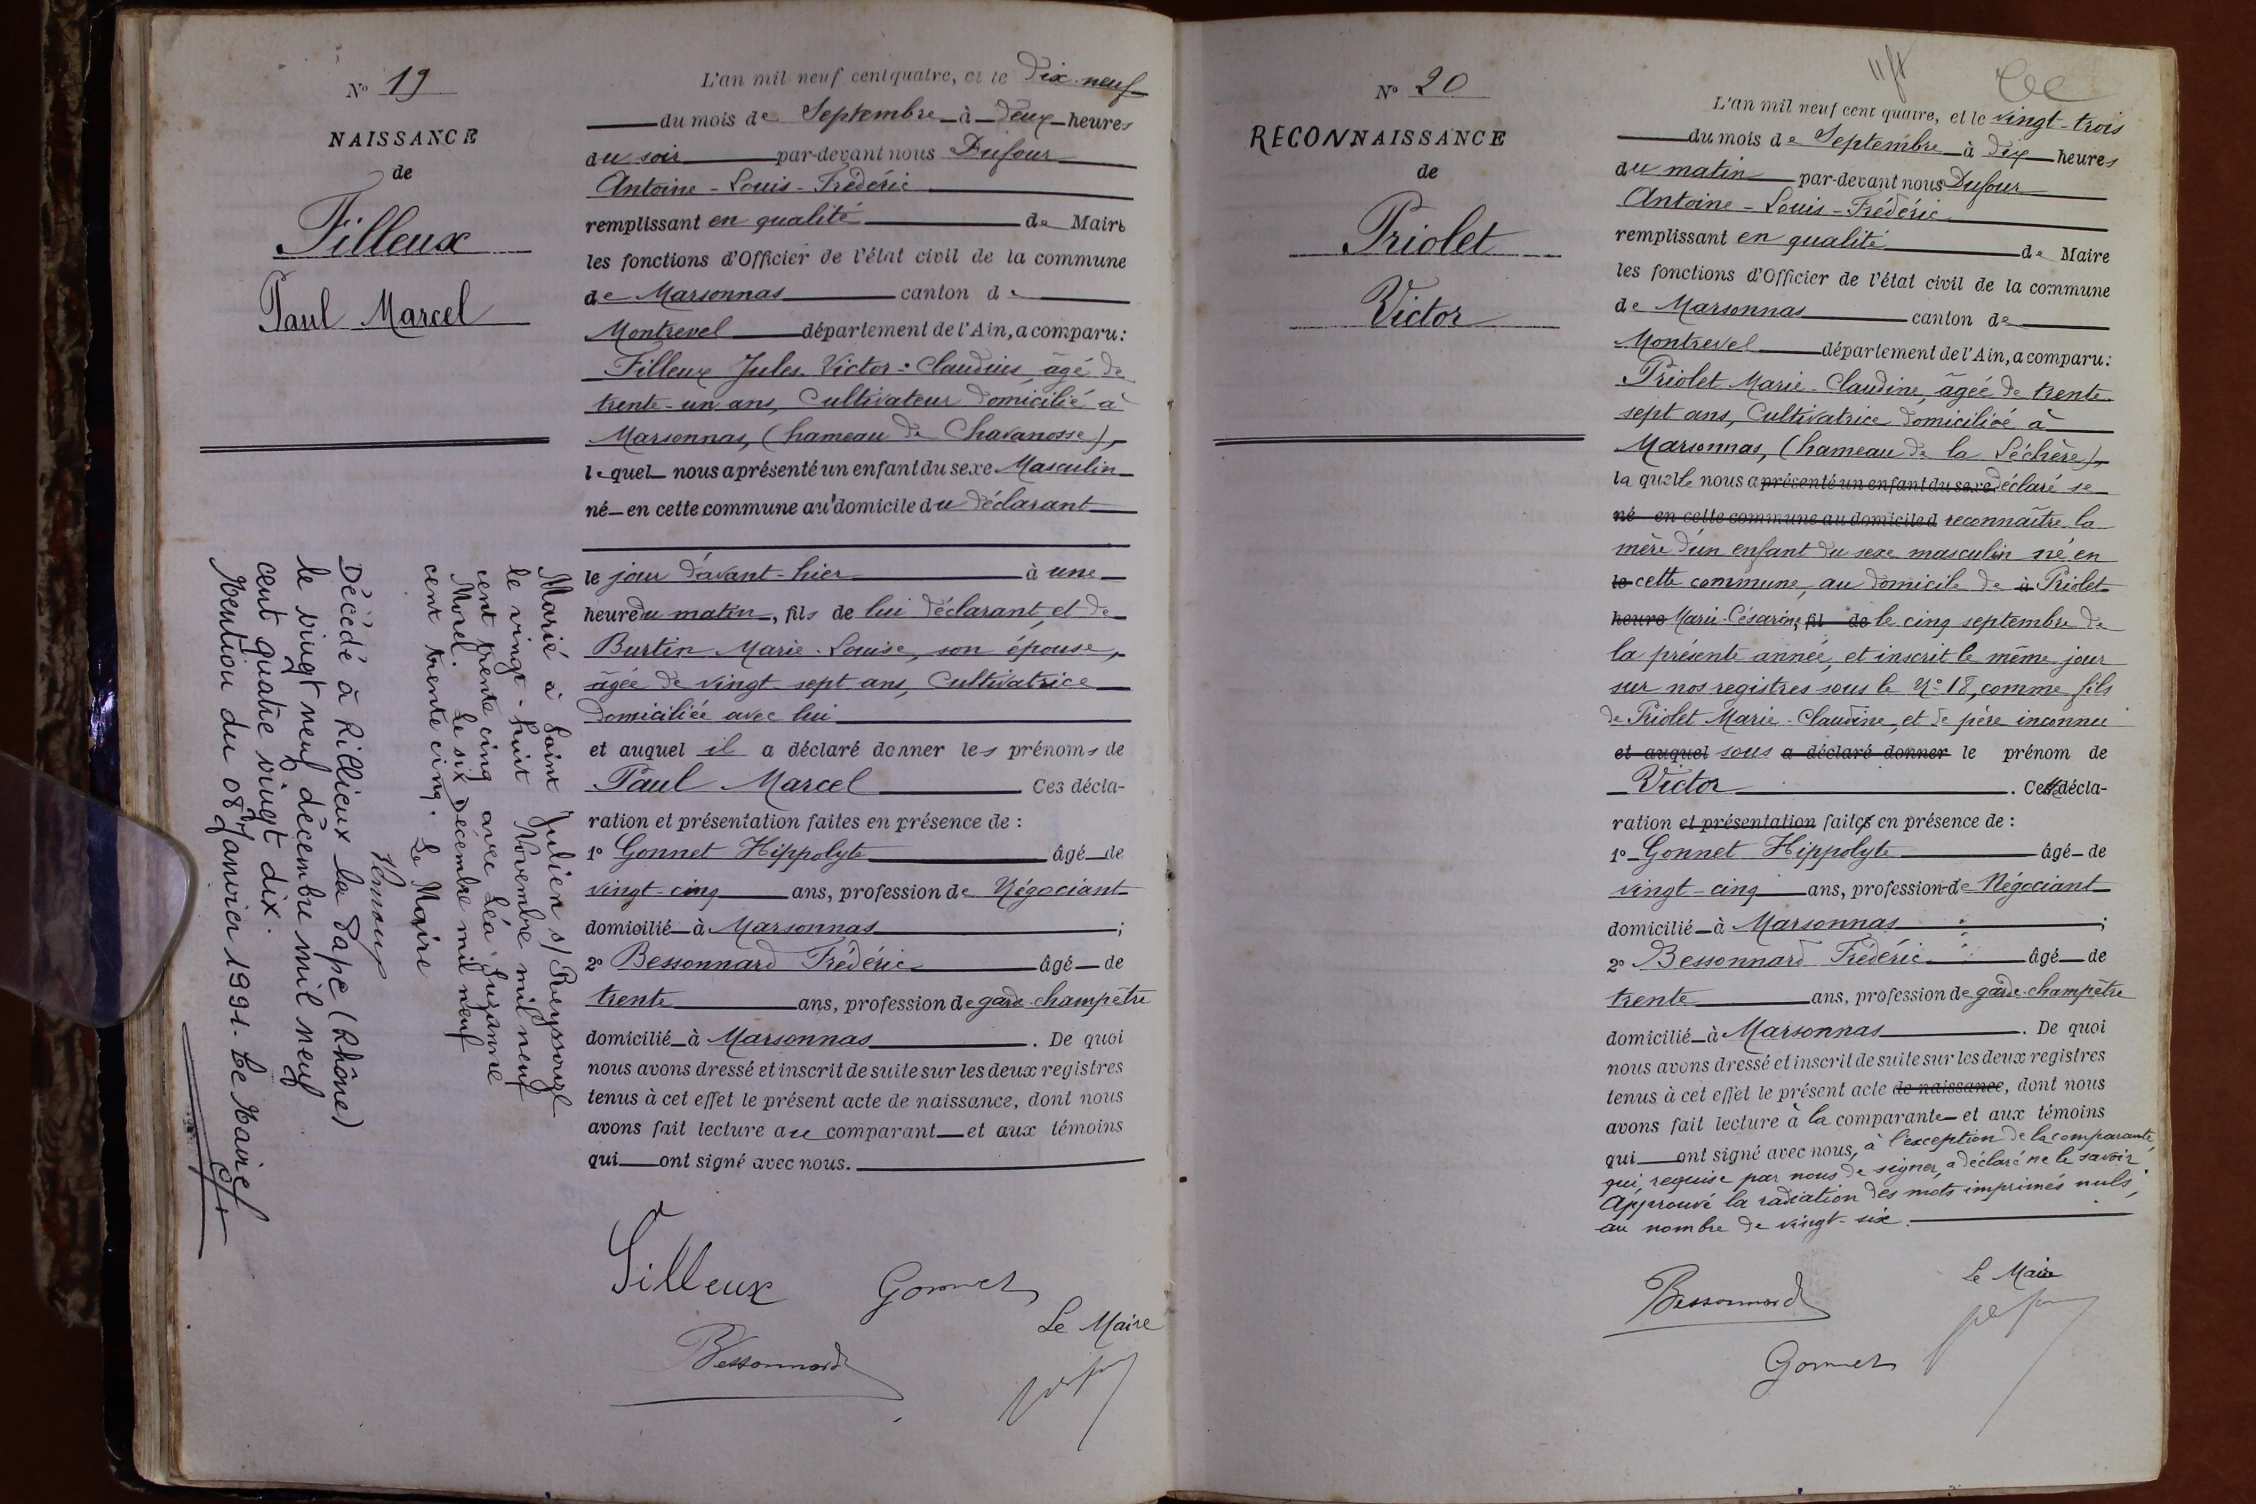 N° 19
NAISSANCE
de
Filleux
Paul Marcel
L'an mil neuf cent quatre, et le dix-neuf
du mois de Septembre à deux heures
du soir par-devant nous Dufour
Antoine-Louis-Frédéric
remplissant en qualité de Maire
les fonctions d'Officier de l'état civil de la commune
de Marsonnas canton de
Montrevel département de l'Ain, a comparu:
Filleux Jules Victor-Claudius, âgé de
trente-un ans, Cultivateur domicilié à
Marsonnas, (hameau de Chavanosse),
lequel nous a présenté un enfant du sexe Masculin
né en cette commune au domicile du déclarant
le jour d'avant-hier à une
heure du matin, fils de lui déclarant, et de
Burtin Marie-Louise, son épouse,
âgée de vingt-sept ans, Cultivatrice
domiciliée avec lui
et auquel il a déclaré donner les prénoms de
Paul Marcel Ces décla-
ration et présentation faites en présence de :
1° Gonnet Hippolyte âgé de
vingt-cinq ans, profession de Négociant
domicilié à Marsonnas ;
2° Bessonnard Frédéric âgé de
trente ans, profession de garde-champêtre
domicilié à Marsonnas. De quoi
nous avons dressé et inscrit de suite sur les deux registres
tenus à cet effet le présent acte de naissance, dont nous
avons fait lecture au comparant et aux témoins
qui ont signé avec nous.
Filleux Gonnet
Le Maire
Bessonnard
Marié à Saint Julien s/ Reyssouze
le vingt-huit Novembre mil neuf
cent trente cinq avec Léa Suzanne
Morel. Le six Décembre mil neuf
cent trente cinq. Le Maire
Décédé à Rillieux la Pape (Rhône)
le vingt neuf décembre mil neuf
cent quatre vingt dix.
Mention du 08 Janvier 1991. Le Maire
N° 20
RECONNAISSANCE
de
Priolet
Victor
L'an mil neuf cent quatre, et le vingt-trois
du mois de Septembre à dix heures
du matin par-devant nous Dufour
Antoine-Louis-Frédéric
remplissant en qualité de Maire
les fonctions d'Officier de l'état civil de la commune
de Marsonnas canton de
Montrevel département de l'Ain, a comparu:
Priolet Marie-Claudine, âgée de trente
sept ans, Cultivatrice domiciliée à
Marsonnas, (hameau de la Léchère),
laquelle nous a présenté un enfant du sexe déclaré se
né en cette commune au domicile d reconnaître la
mère d'un enfant du sexe masculin né en
le cette commune, au domicile de à Priolet
heure Marie-Césarine, fil de le cinq septembre de
la présente année, et inscrit le même jour
sur nos registres sous le N° 18, comme fils
de Priolet Marie-Claudine, et de père inconnu
et auquel sous a déclaré donner le prénom de
Victor. Cette décla-
ration et présentation faite en présence de :
1° Gonnet Hippolyte âgé de
vingt-cinq ans, profession de Négociant
domicilié à Marsonnas ;
2° Bessonnard Frédéric âgé de
trente ans, profession de garde-champêtre
domicilié à Marsonnas. De quoi
nous avons dressé et inscrit de suite sur les deux registres
tenus à cet effet le présent acte de naissance, dont nous
avons fait lecture à la comparante et aux témoins
qui ont signé avec nous, à l'exception de la comparante,
qui, requise par nous de signer, a déclaré ne le savoir.
Approuvé la radiation des mots imprimés nuls,
au nombre de vingt-six.
Le Maire
Bessonnard
Gonnet